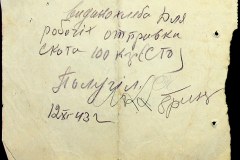 Выдано хлеба для
рабочих отправка
скота 100 кг (Сто)
Получил
12/XI 43 г